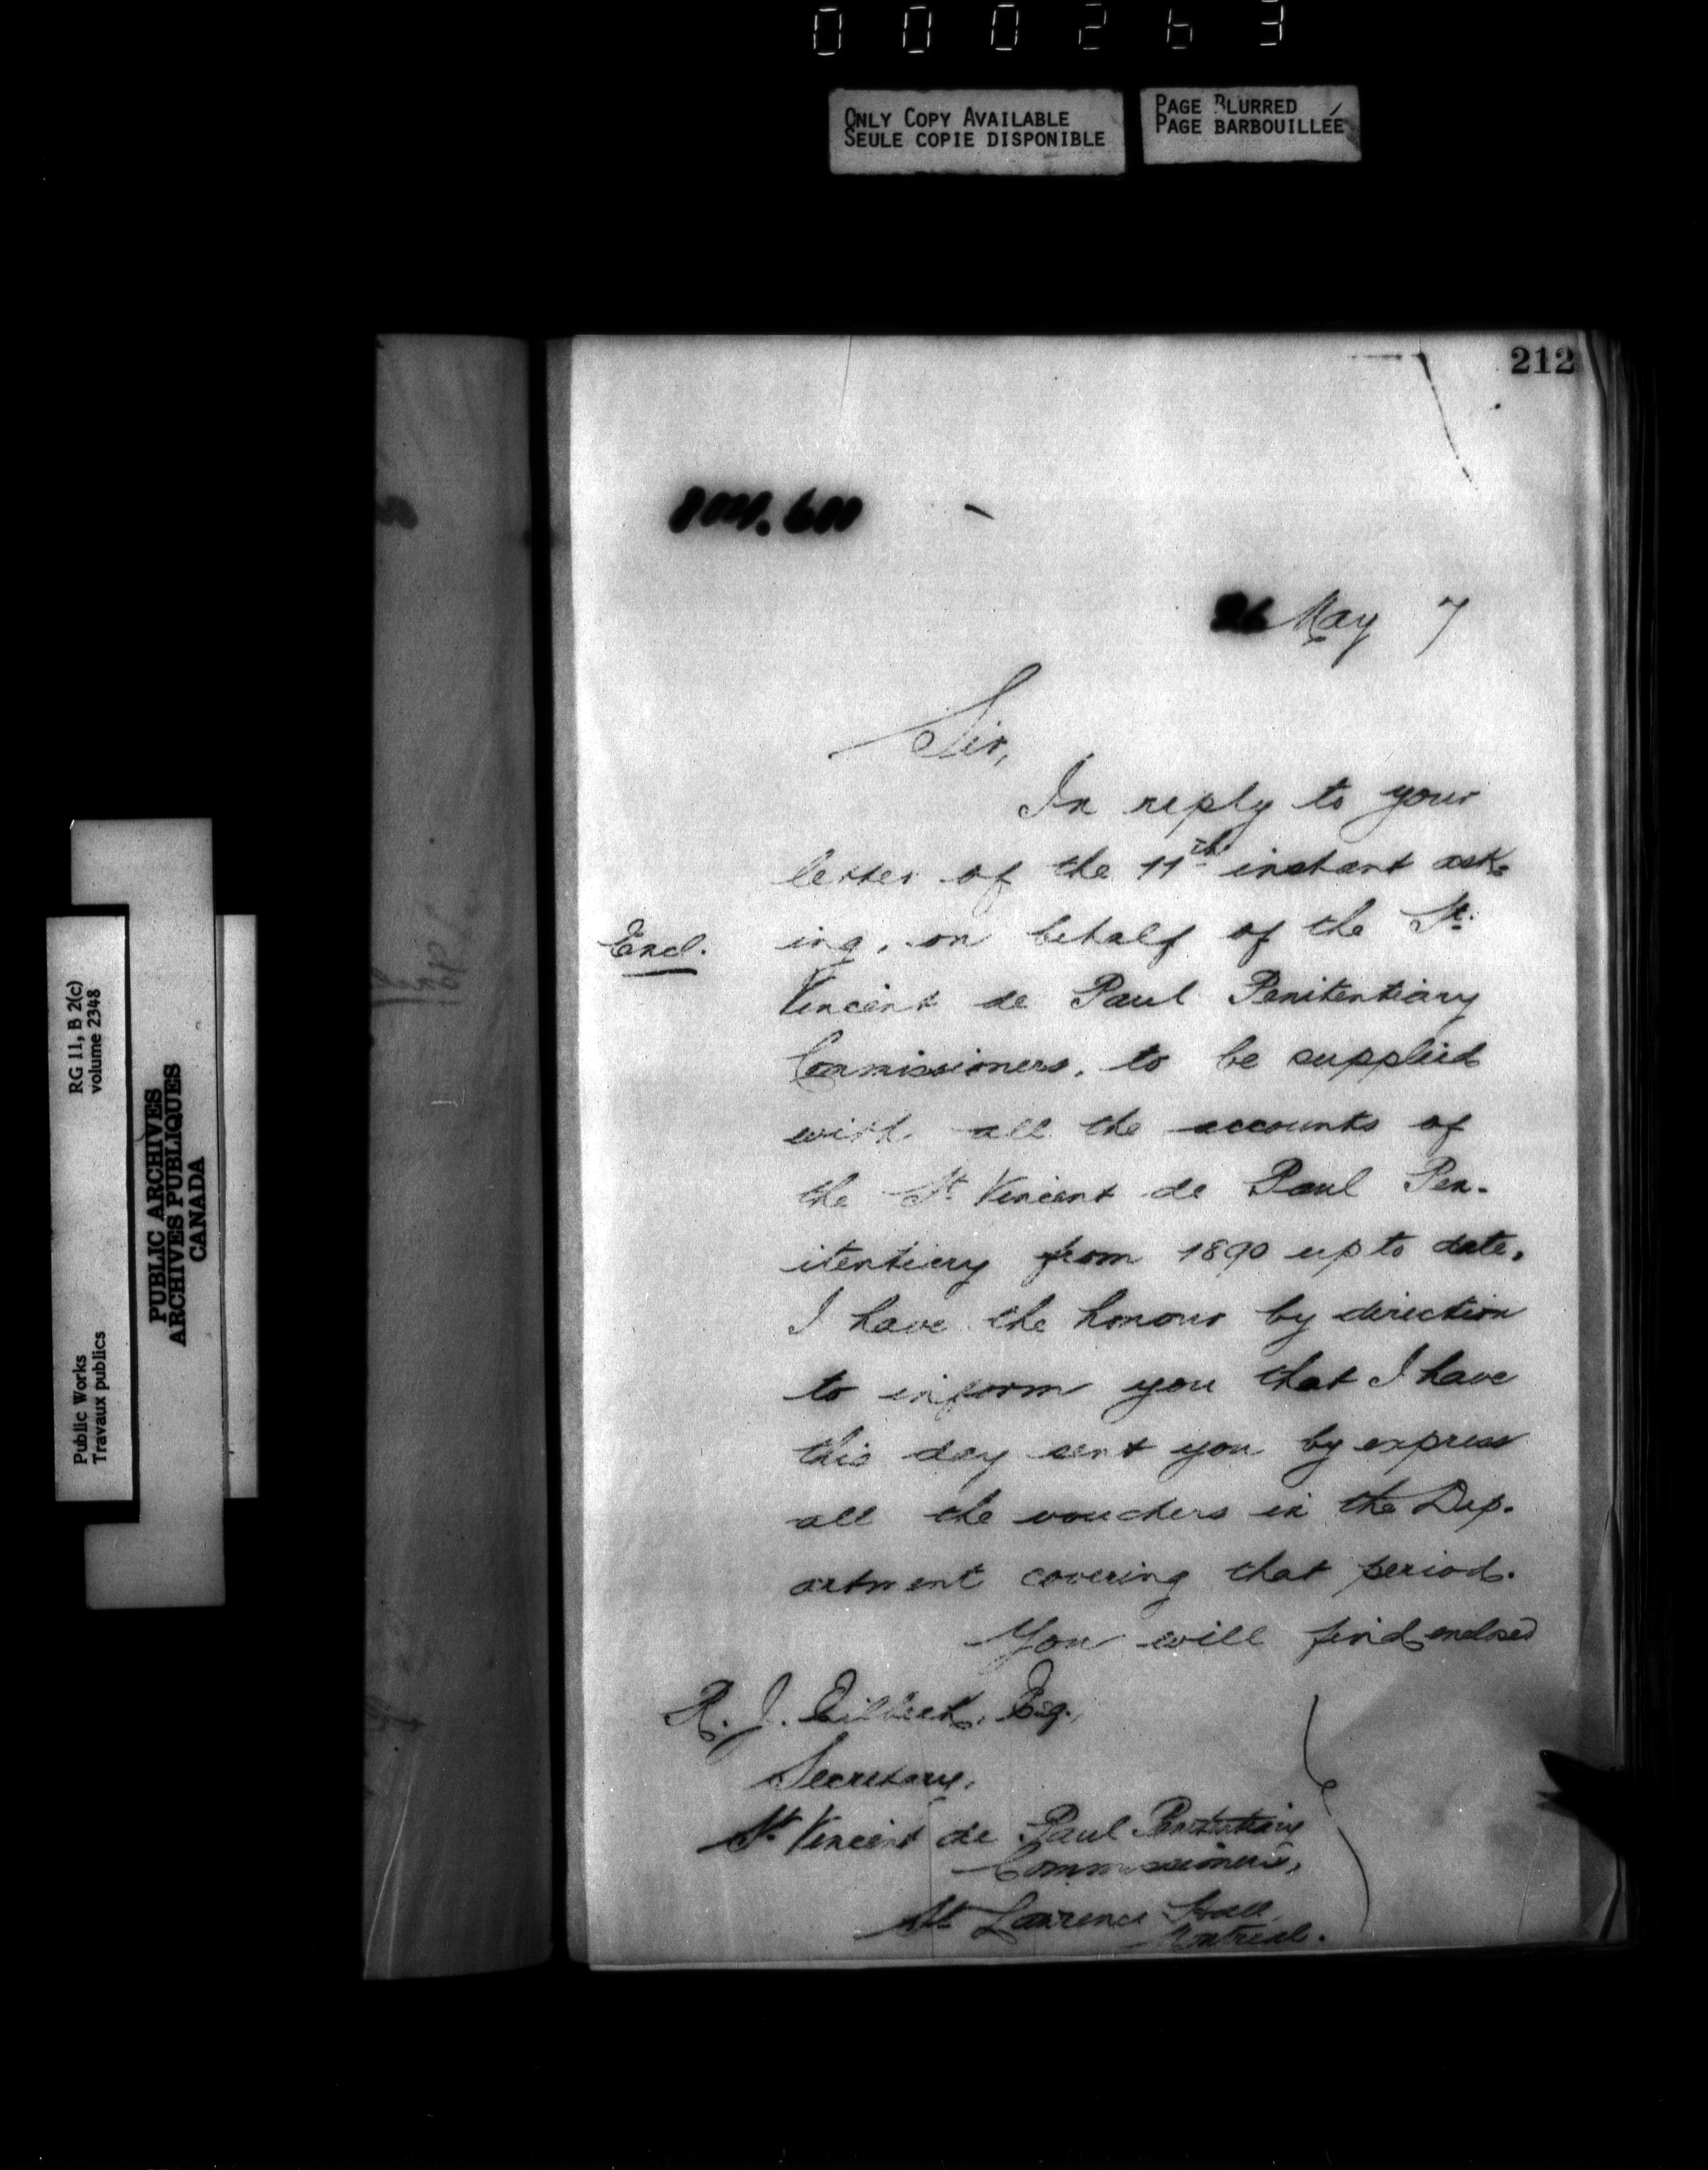 000263
ONLY COPY AVAILABLE
SEULE COPIE DISPONIBLE
PAGE BLURRED
PAGE BARBOUILLÉE
212
26 May 7
Sir,
In reply to your
letter of the 11th instant ask-
Encl.
ing, on behalf of the St.
Vincent de Paul Penitentiary
Commissioners, to be supplied
with all the accounts of
the St Vincent de Paul Pen-
itentiary from 1890 up to date,
I have the honour by direction
to inform you that I have
this day sent you by express
all the vouchers in the Dep-
artment covering that period.
You will find enclosed
R. J. Esq.,
Secretary,
St. Vincent de Paul Penitentiary
Commissioners,
St Lawrence Hall,
Montreal.
RG 11, B 2(c)
volume 2348
Public Works
Travaux publics
PUBLIC ARCHIVES
ARCHIVES PUBLIQUES
CANADA